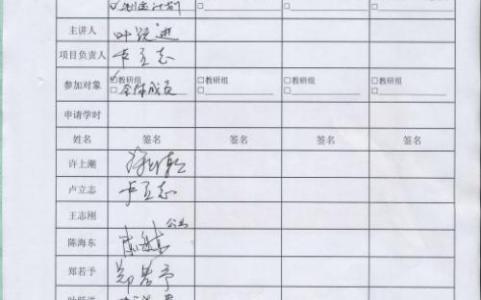 主讲人
项目负责人 卢立志
参加对象 ☑教研组 □教研组 □教研组 □教研组
□全体成员 □ □ □
申请学时
姓名 签名 签名 签名 签名
许上潮
卢立志 卢立志
王志刚 公出
陈海东 陈海东
郑若予 郑若予